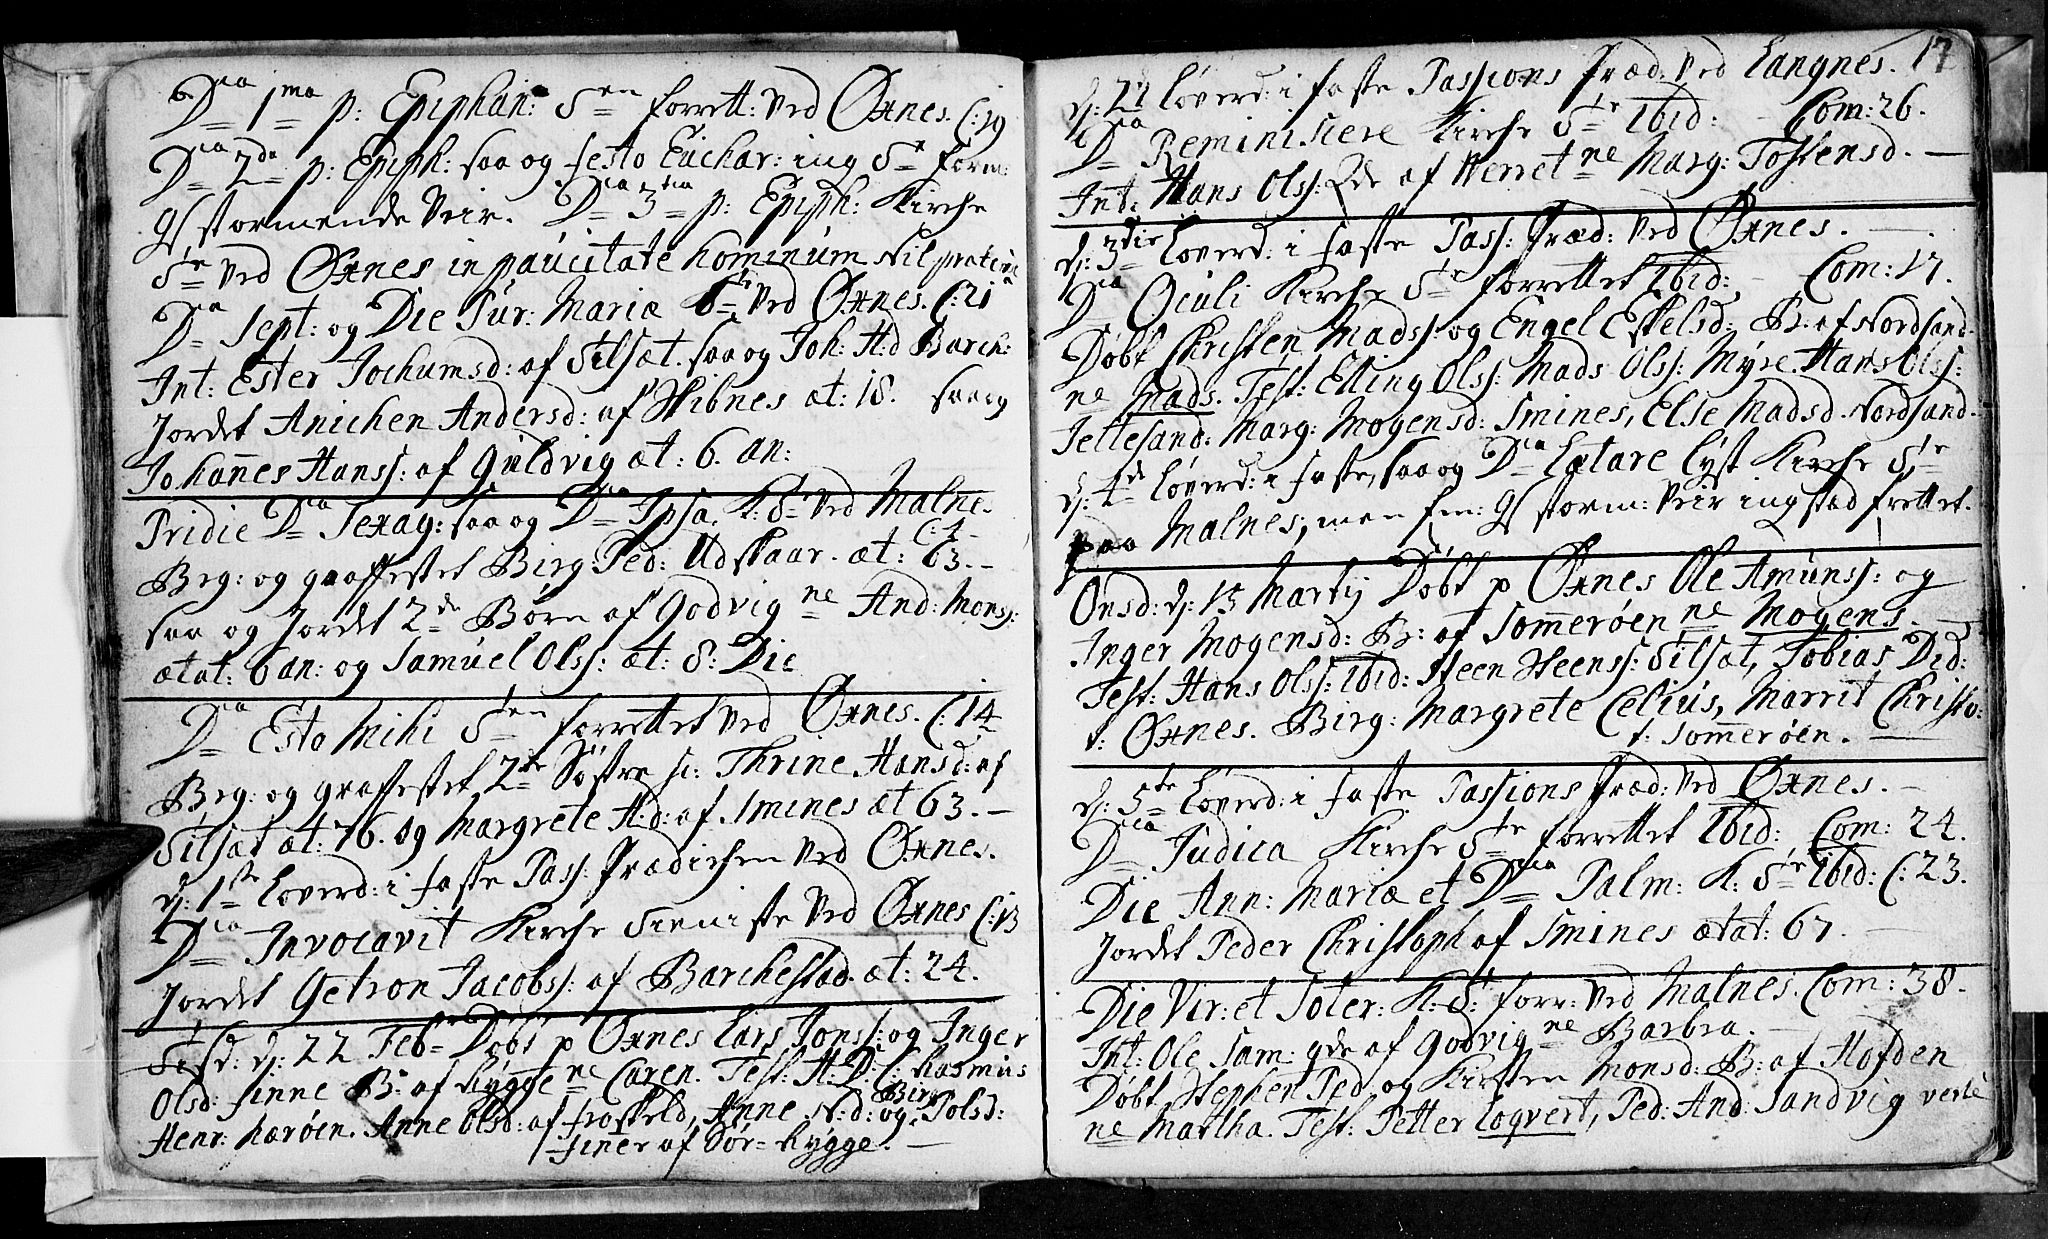 Dca 1ma p: Epiphan: Sten forrett: ved Øxnes. C: 19
Dca 2da p: Epiph: saa og festo Euchar: ing Ste form:
stormende Veir. Dca 3tia p: Epiph: Kirche
Ste ved Øxnes in paucitate hominum
Dca Sept: og Die Pur: Mariæ Ste ved Øxnes. C: 21
Int: Ester Jochumsd: af Tilsæt. saa og Joh: H:d Barch:
Jordet Anichen Andersd: af Stibnes æt: 18. saa og
Johannes Hanss: af Guldvig æt: 6. an:
Pridie Dca Sexag: saa og Dca Ipsa. K: Ste ved Malne.
C: 4
Beg: og graffestet Birg: Ped: Udskaar. æt: 63.
saa og Jordet 2de Børn af Godvig ne And: Monss:
ætat: 6 an: og Samuel Olss: æt: 8: Die
Dca Esto Mihi Sten forrettet ved Øxnes. C: 14
Beg: og graffestet 2de Søstre sc: Thrine Hansd: af
Tilsæt æt: 76. og Margrete H:d: af Smines æt 63.
d: 1ste Løverd: i faste Pass: Prædichen ved Øxnes.
Dca Invocavit Kirche Tieniste ved Øxnes C: 13
Jordet Getron Jacobss: af Barchestad æt: 24.
d: 22 Feb: Døbt p Øxnes Lars Jonss: og Inger
Olsd: finne B: af Lygge ne Caren. Test: H: D: C: Rasmus
Henr: Lærøen. Anne Olsd: af froskeld, Anne N:d: og Birg: Polsd:
finer af Sør-Lygge.
17
d: 22 Løverd: i faste Passions Præd: ved Langnes.
Dca Reminiscere Kirche Ste Ibid: Com: 26.
Int: Hans Olss: Qde af Werret ne Marg: Tostensd.
d: 3die Løverd: i faste Pass: Præd: ved Øxnes.
Dca Oculi Kirche Ste forrettet Ibid: Com: 17.
Døbt Christen Madss: og Engel Eskelsd: B: af Nordsand.
ne Mads. Test: Elling Olss: Mads Olss: Myre. Hans Olss:
Tettesand: Marg: Mogensd: Smines, Else Madsd. Nordsand.
d: 4de Løverd: i faste, saa og Dca Lætare lyst Kirche Ste
paa Malnes, men storm: Veir ing stad frettet.
Onsd: d: 13 Martij Døbt p Øxnes Ole Amunss: og
Inger Mogensd: B: af Sommerøen ne Mogens.
Test: Hans Olss: Ibid: Steen Steenss: Tilsæt, Tobias Did:
t: Øxnes. Birg: Margrete Celius, Marrit Christo:
t: Sommerøen.
d: 5te Løverd: i faste Passions Præd: ved Øxnes.
Dca Judica Kirche Ste forrettet Ibid: Com: 24.
Die Ann: Mariæ et Dca Palm: K: Ste Ibid: C: 23.
Jordet Peder Christoph af Smines ætat: 67.
Die Vir: et Soter: K: S: forr: ved Malnes. Com: 38.
Int: Ole Sam: gde af Godvig ne Barbra.
Døbt Stephen Ped og Kirsten Monsd: B: af Hofden
ne Martha. Test: Petter Loqvert, Ped: And: Sandvig